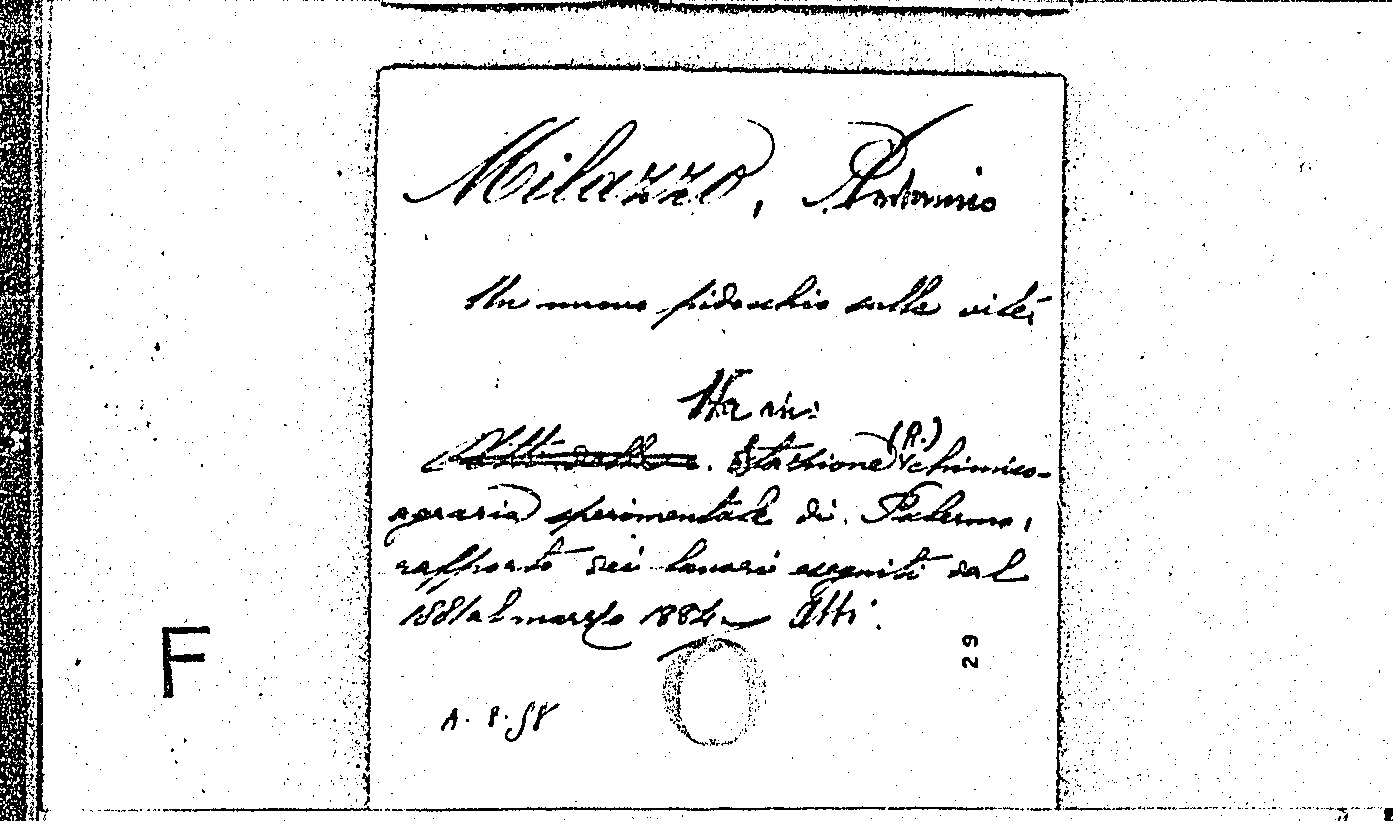 Milazzo, Antonio
Un nuovo pidocchio sulle viti.
Sta in:
Atti della R. Stazione (R.) chimico-
agraria sperimentale di Palermo,
rapporto dei lavori eseguiti dal
1881 al marzo 1884 — Atti.
29
F
A. 8. 58